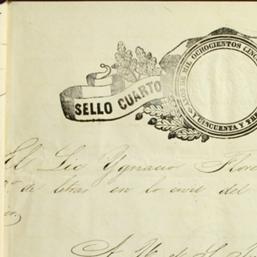 SELLO CUARTO
MIL OCHOCIENTOS CINC
CINCUENTA Y TRE
El Lic Ygnacio Flore
de letras en lo civil del